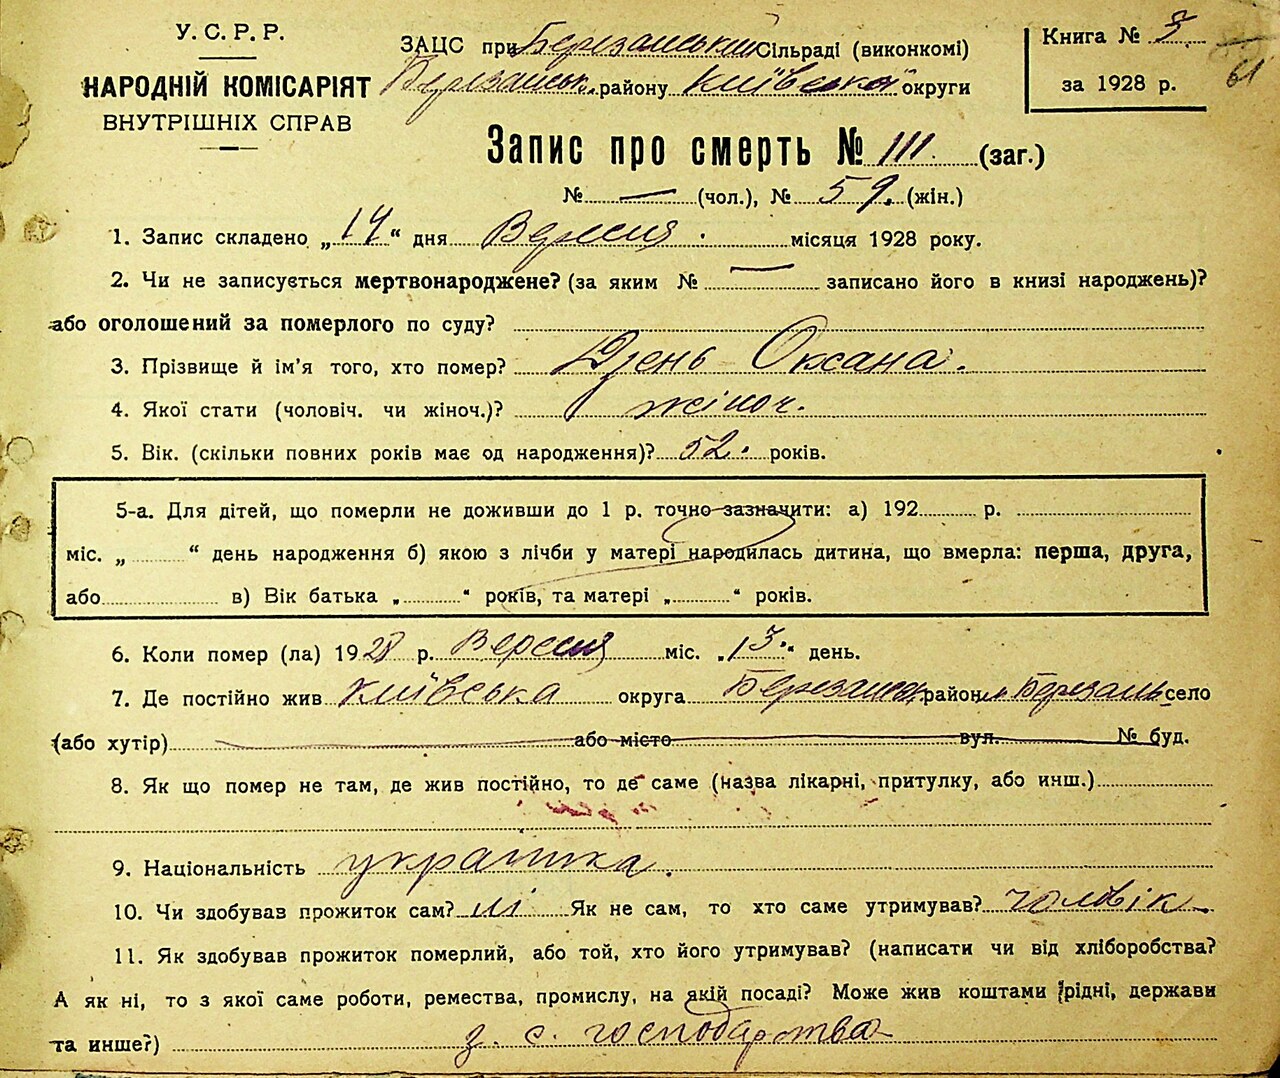 У. С. Р. Р.
НАРОДНІЙ КОМІСАРІЯТ
ВНУТРІШНІХ СПРАВ
ЗАЦС при Березанський Сільраді (виконкомі)
Березанськ. району Київської округи
Книга № 3
за 1928 р.
61
Запис про смерть № 111. (заг.)
№ — (чол.), № 59. (жін.)
1. Запис складено „14“ дня Вересня місяця 1928 року.
2. Чи не записується мертвонароджене? (за яким № — записано його в книзі народжень)?
або оголошений за померлого по суду?
3. Прізвище й ім'я того, хто помер? Дзень Оксана.
4. Якої стати (чоловіч. чи жіноч.)? жіноч.
5. Вік. (скільки повних років має од народження)? 52. років.
5-а. Для дітей, що померли не доживши до 1 р. точно зазначити: а) 192 р.
міс. „ “ день народження б) якою з лічби у матері народилась дитина, що вмерла: перша, друга,
або в) Вік батька „ “ років, та матері „ “ років.
6. Коли помер (ла) 1928 р. Вересня міс. „13.“ день.
7. Де постійно жив Київська округа район Березань село
(або хутір) або місто вул. № буд.
8. Як що помер не там, де жив постійно, то де саме (назва лікарні, притулку, або инш.)
9. Національність українка.
10. Чи здобував прожиток сам? ні Як не сам, то хто саме утримував? чоловік
11. Як здобував прожиток померлий, або той, хто його утримував? (написати чи від хліборобства?
А як ні, то з якої саме роботи, ремества, промислу, на якій посаді? Може жив коштами рідні, держави
та инше?) з. с. господарства